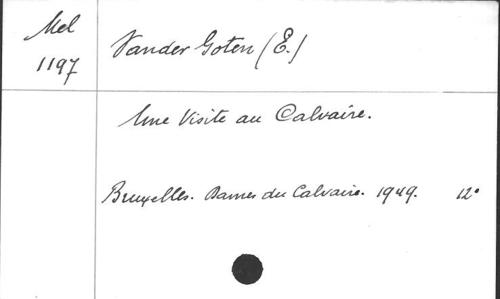 Mel
1197
Vander Goten (E.)
Une Visite au Calvaire.
Bruxelles. Dames du Calvaire. 1949. 12°